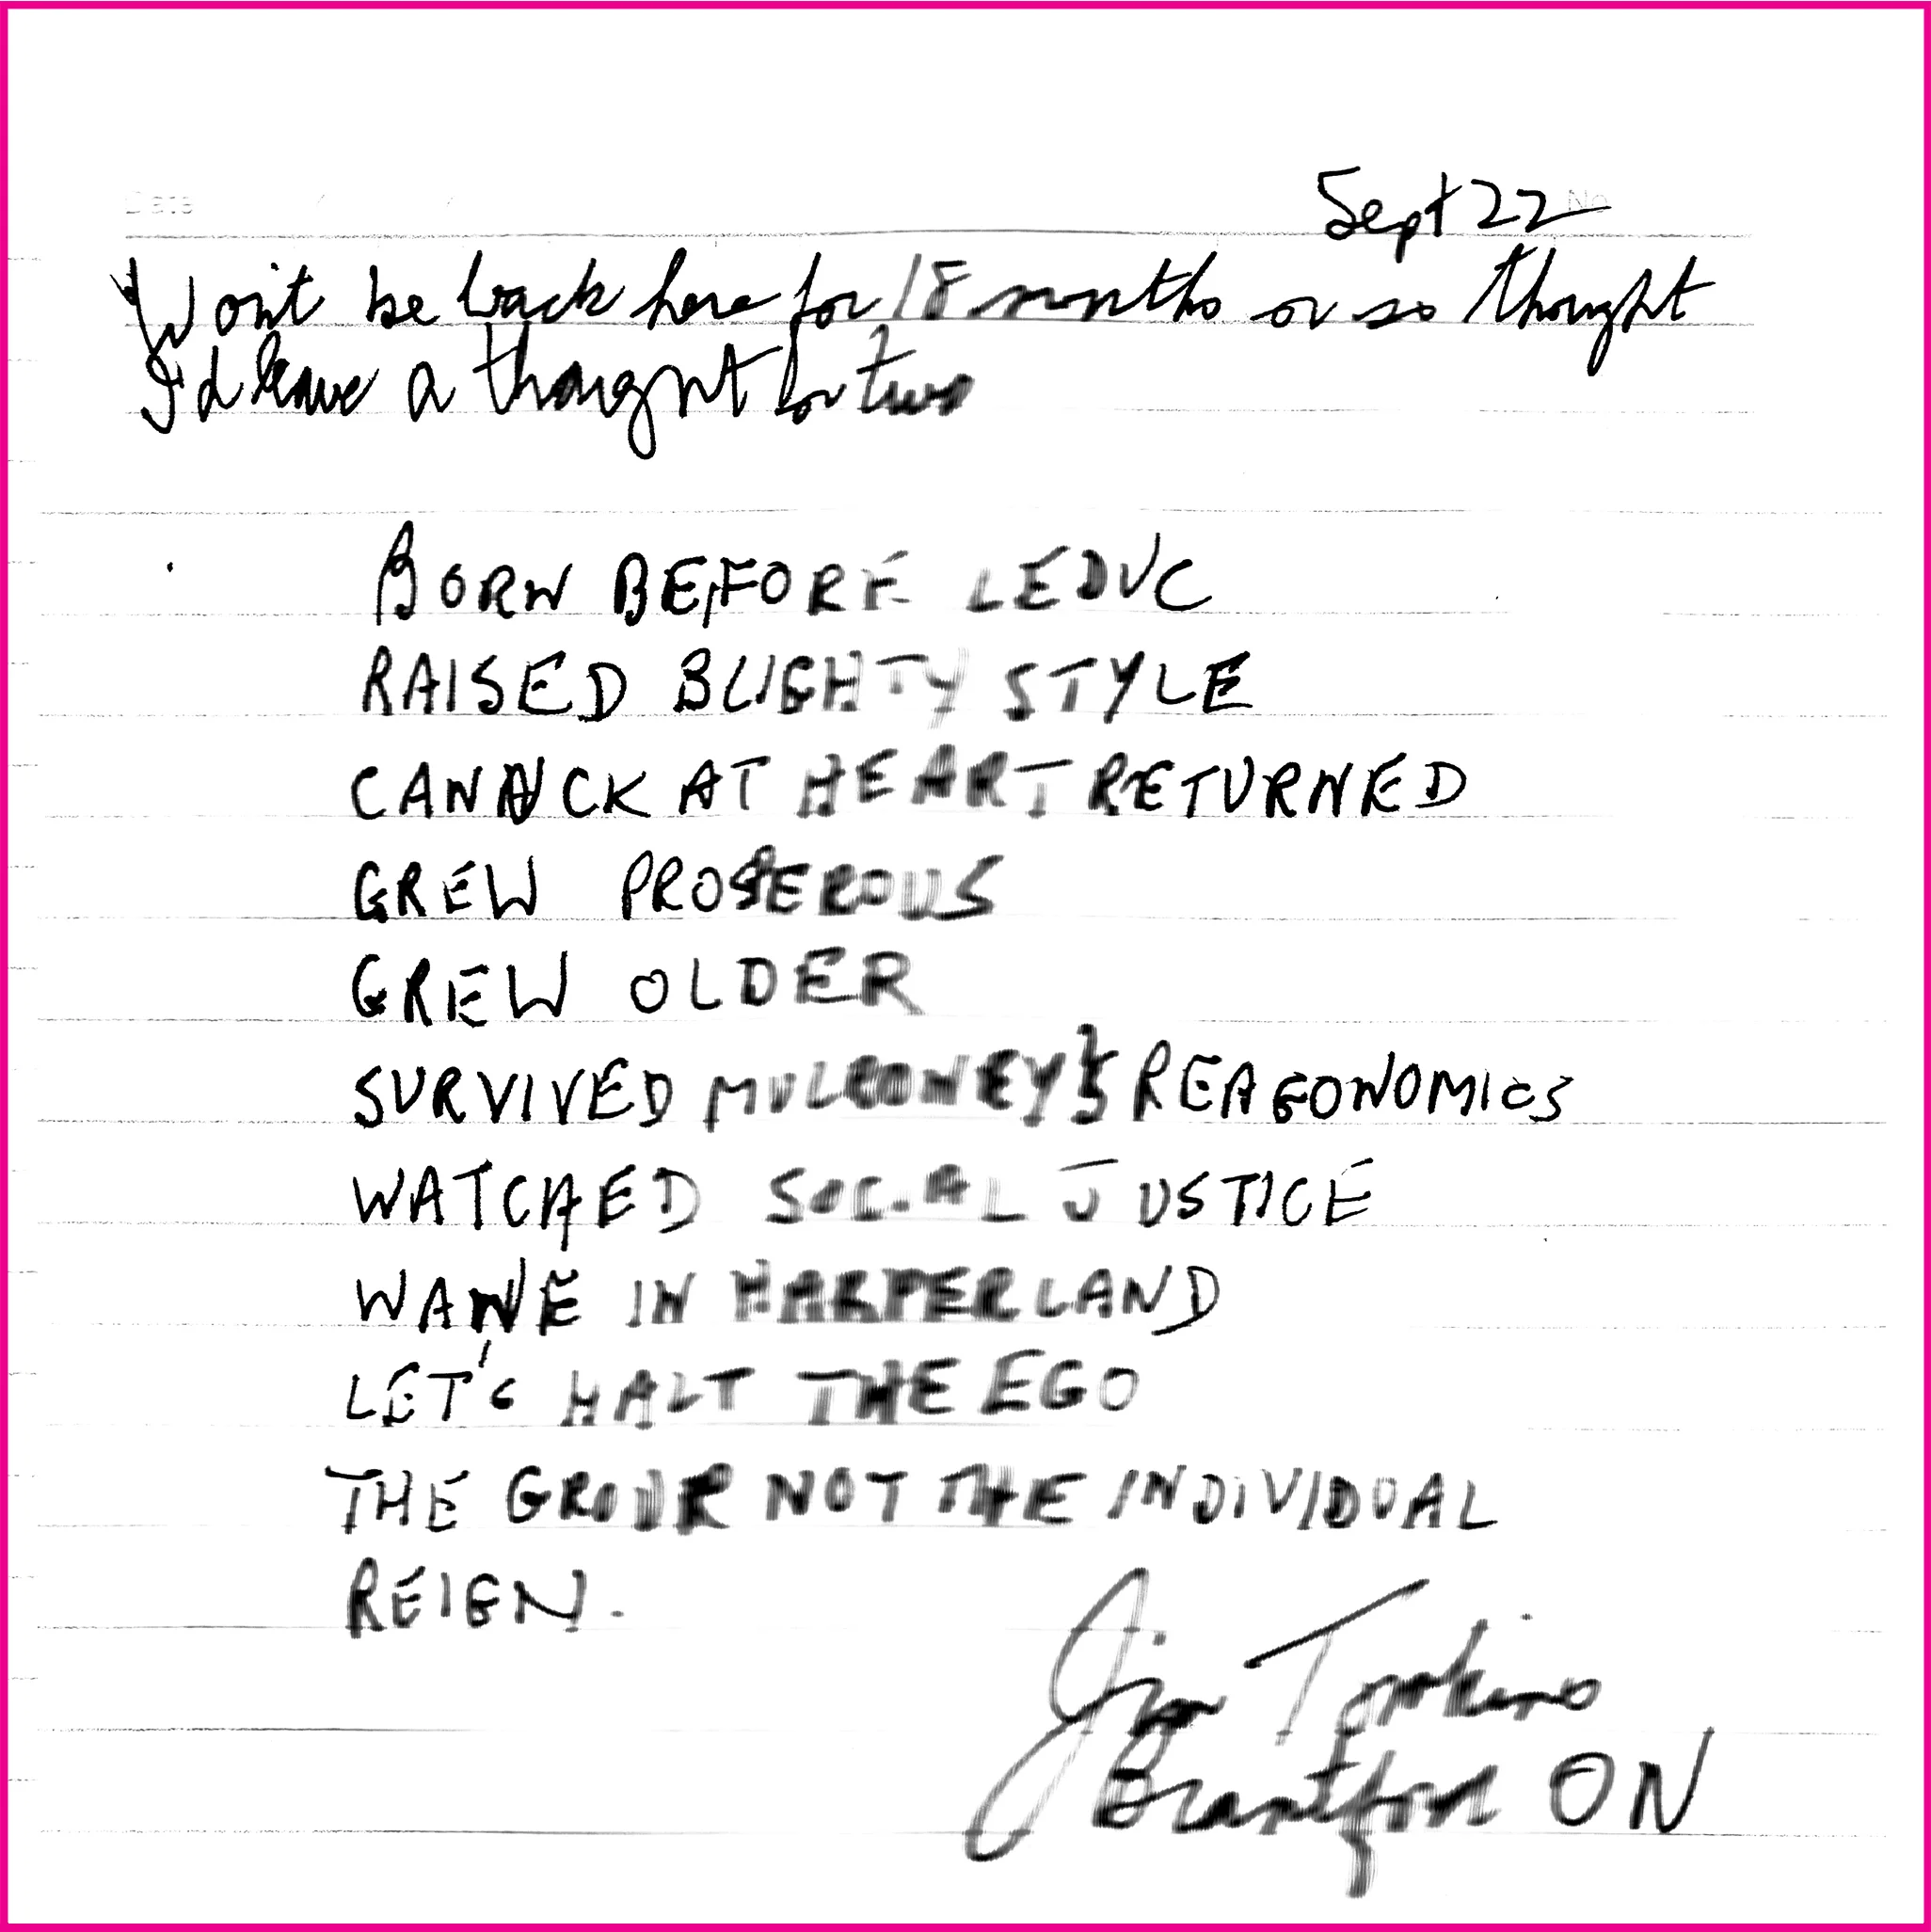 Date No
Sept 22
Won't be back here for 18 months or so thought
I'd leave a thought or two
BORN BEFORE LEDUC
RAISED BLIGHTY STYLE
CANNCK AT HEART RETURNED
GREW PROSPEROUS
GREW OLDER
SURVIVED MULRONEY & REAGONOMICS
WATCHED SOCIAL JUSTICE
WANE IN HARPERLAND
LET'S HALT THE EGO
THE GROUP NOT THE INDIVIDUAL
REIGN.
Jim
Brantford ON